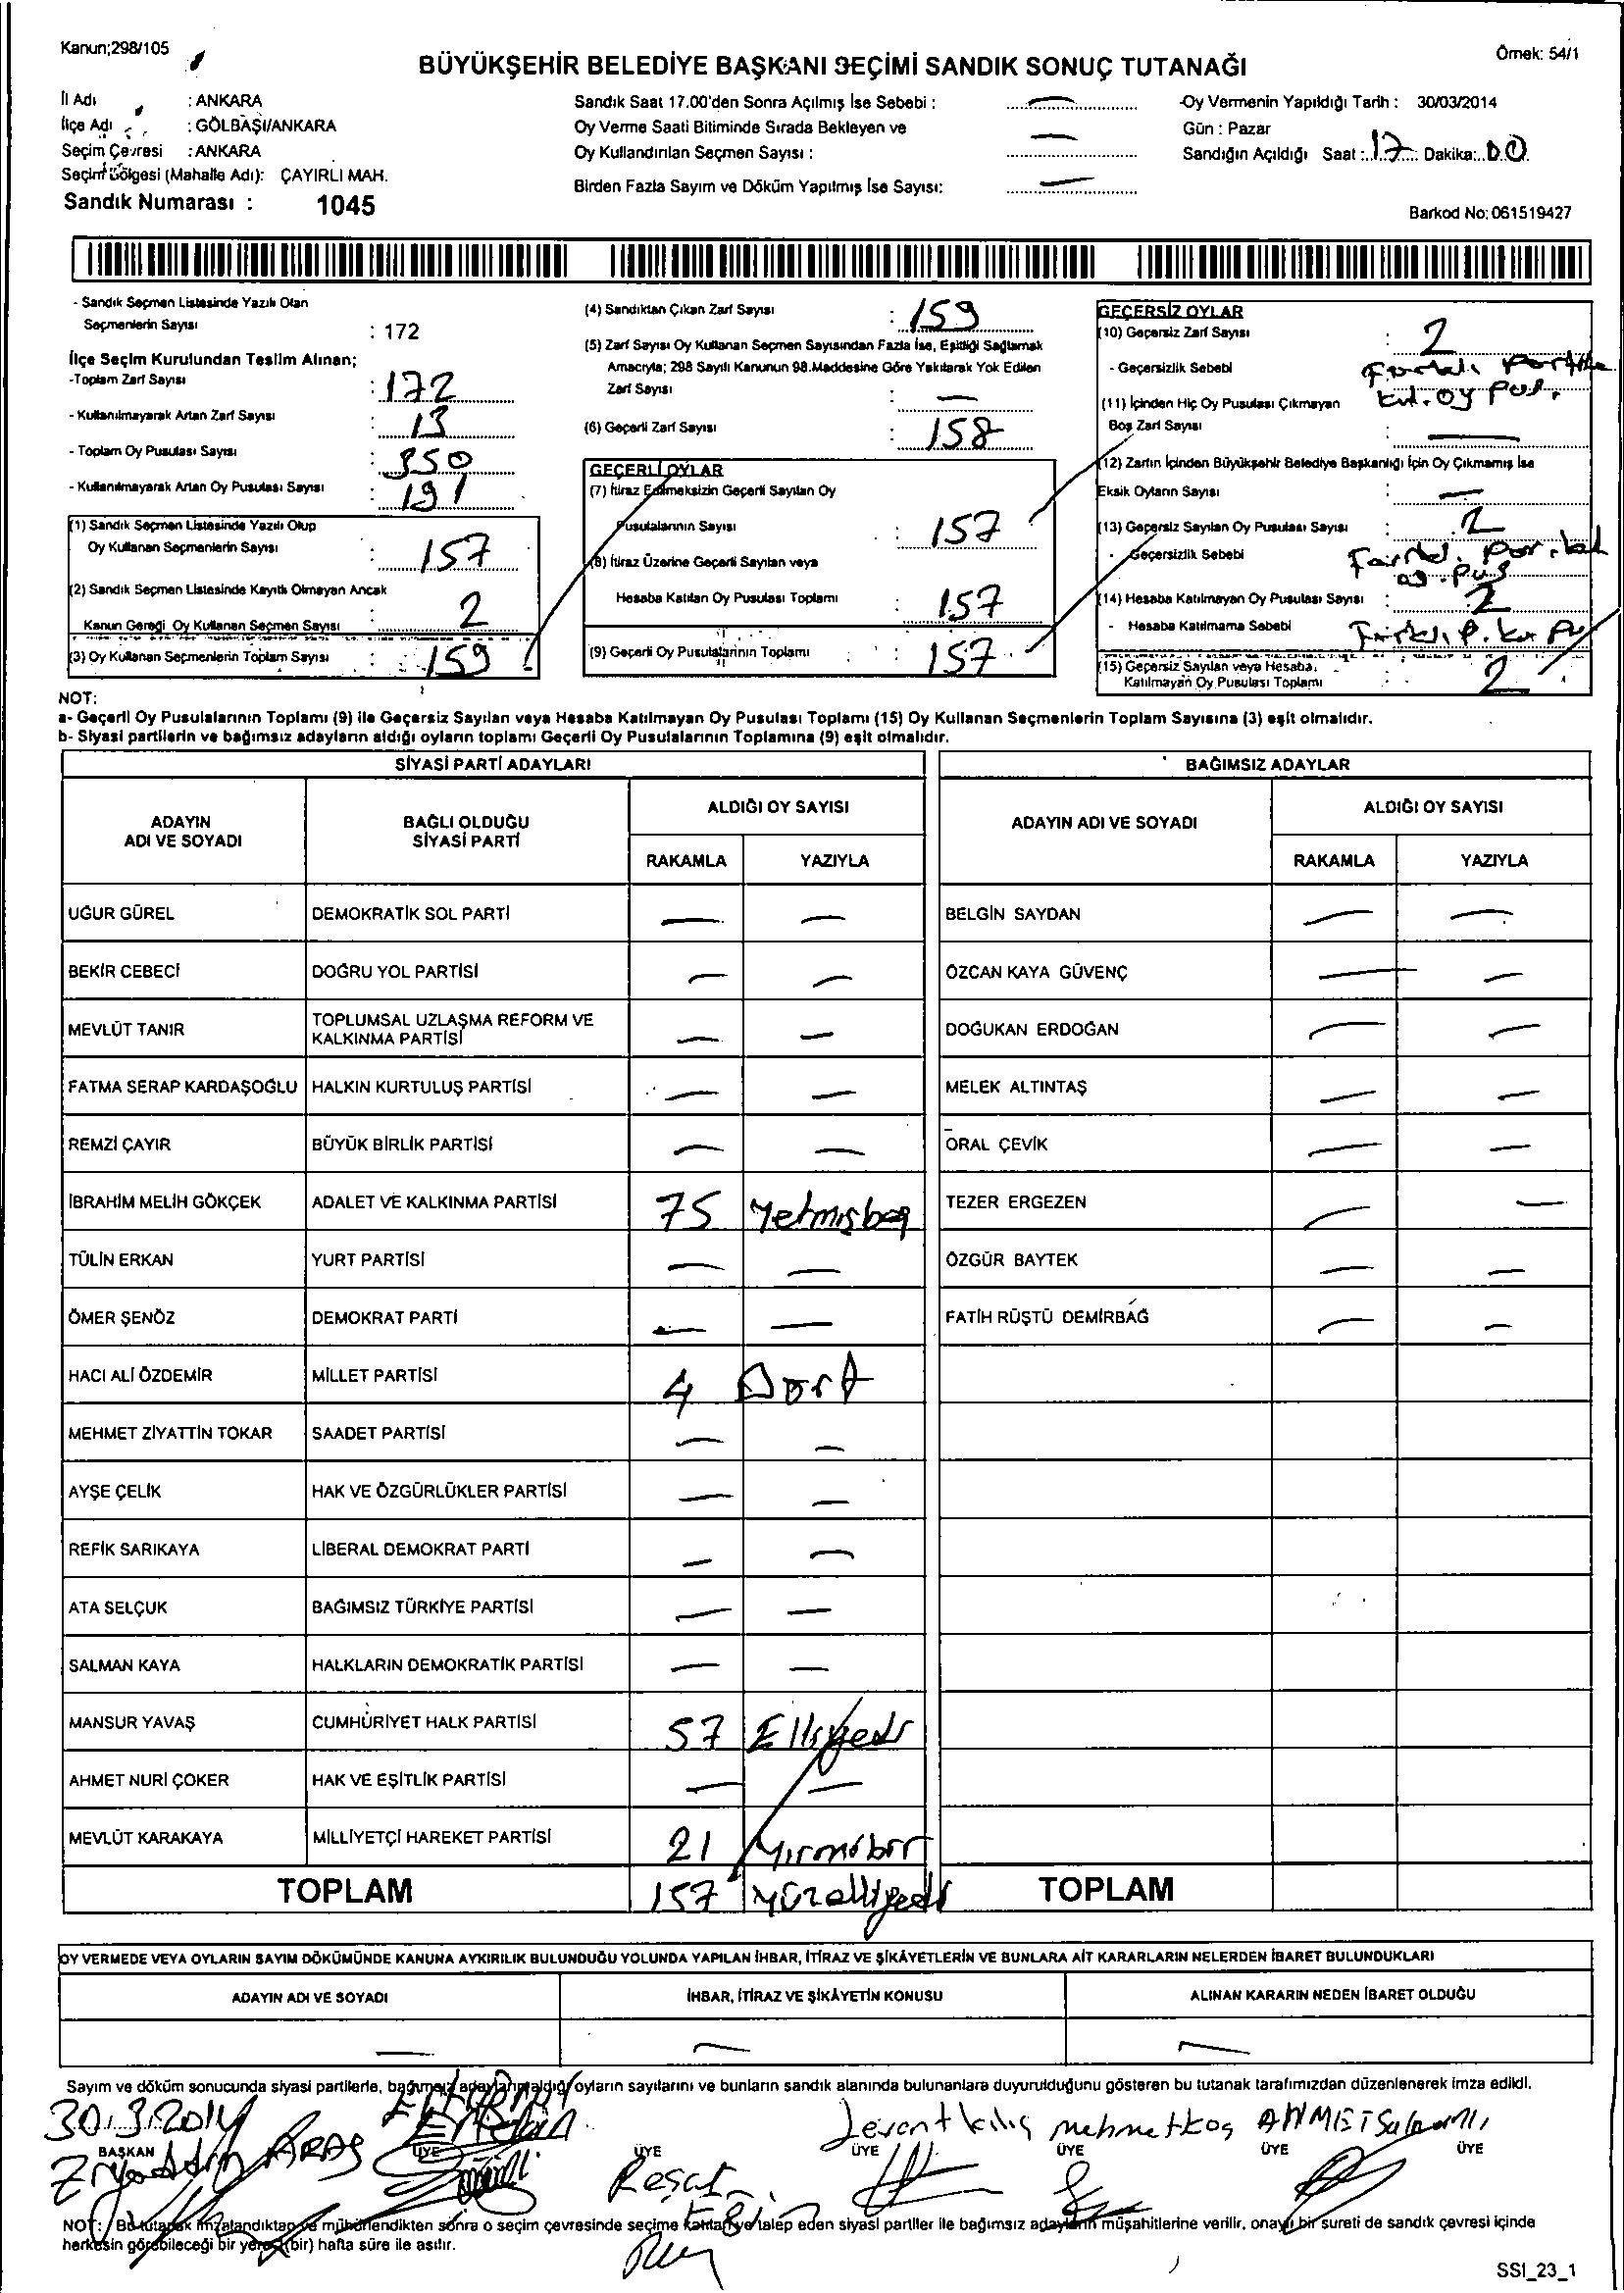 Kanun;298/105
Örnek: 54/1
BÜYÜKŞEHİR BELEDİYE BAŞKANI SEÇİMİ SANDIK SONUÇ TUTANAĞI
İl Adı : ANKARA
İlçe Adı : GÖLBAŞI/ANKARA
Seçim Çevresi : ANKARA
Seçim Bölgesi (Mahalle Adı): ÇAYIRLI MAH.
Sandık Numarası : 1045
Sandık Saat 17.00'den Sonra Açılmış İse Sebebi : —
Oy Verme Saati Bitiminde Sırada Bekleyen ve
Oy Kullandırılan Seçmen Sayısı : —
Birden Fazla Sayım ve Döküm Yapılmış İse Sayısı: —
-Oy Vermenin Yapıldığı Tarih : 30/03/2014
Gün : Pazar
Sandığın Açıldığı Saat : 17 Dakika: 00
Barkod No: 061519427
- Sandık Seçmen Listesinde Yazılı Olan
Seçmenlerin Sayısı : 172
İlçe Seçim Kurulundan Teslim Alınan;
-Toplam Zarf Sayısı : 172
- Kullanılmayarak Artan Zarf Sayısı : 13
- Toplam Oy Pusulası Sayısı : 350
- Kullanılmayarak Artan Oy Pusulası Sayısı : 191
(1) Sandık Seçmen Listesinde Yazılı Olup
Oy Kullanan Seçmenlerin Sayısı : 157
(2) Sandık Seçmen Listesinde Kayıtlı Olmayan Ancak
Kanun Gereği Oy Kullanan Seçmen Sayısı 2
(3) Oy Kullanan Seçmenlerin Toplam Sayısı : 159
(4) Sandıktan Çıkan Zarf Sayısı : 159
(5) Zarf Sayısı Oy Kullanan Seçmen Sayısından Fazla İse, Eşitliği Sağlamak
Amacıyla; 298 Sayılı Kanunun 98.Maddesine Göre Yakılarak Yok Edilen
Zarf Sayısı : —
(6) Geçerli Zarf Sayısı : 158
GEÇERLİ OYLAR
(7) İtiraz Edilmeksizin Geçerli Sayılan Oy
Pusulalarının Sayısı : 157
(8) İtiraz Üzerine Geçerli Sayılan veya
Hesaba Katılan Oy Pusulası Toplamı : 157
(9) Geçerli Oy Pusulalarının Toplamı : 157
GEÇERSİZ OYLAR
(10) Geçersiz Zarf Sayısı : 2
- Geçersizlik Sebebi :
kul. oy pus.
(11) İçinden Hiç Oy Pusulası Çıkmayan
Boş Zarf Sayısı : —
(12) Zarfın İçinden Büyükşehir Belediye Başkanlığı İçin Oy Çıkmamış İse
Eksik Oyların Sayısı : —
(13) Geçersiz Sayılan Oy Pusulası Sayısı : 2
- Geçersizlik Sebebi
(14) Hesaba Katılmayan Oy Pusulası Sayısı : 2
- Hesaba Katılmama Sebebi
(15) Geçersiz Sayılan veya Hesaba
Katılmayan Oy Pusulası Toplamı : 2
NOT:
a- Geçerli Oy Pusulalarının Toplamı (9) ile Geçersiz Sayılan veya Hesaba Katılmayan Oy Pusulası Toplamı (15) Oy Kullanan Seçmenlerin Toplam Sayısına (3) eşit olmalıdır.
b- Siyasi partilerin ve bağımsız adayların aldığı oyların toplamı Geçerli Oy Pusulalarının Toplamına (9) eşit olmalıdır.
SİYASİ PARTİ ADAYLARI
ADAYIN ADI VE SOYADI
BAĞLI OLDUĞU SİYASİ PARTİ
ALDIĞI OY SAYISI
RAKAMLA YAZIYLA
UĞUR GÜREL DEMOKRATİK SOL PARTİ — —
BEKİR CEBECİ DOĞRU YOL PARTİSİ — —
MEVLÜT TANIR TOPLUMSAL UZLAŞMA REFORM VE KALKINMA PARTİSİ — —
FATMA SERAP KARDAŞOĞLU HALKIN KURTULUŞ PARTİSİ — —
REMZİ ÇAYIR BÜYÜK BİRLİK PARTİSİ — —
İBRAHİM MELİH GÖKÇEK ADALET VE KALKINMA PARTİSİ 75 Yetmişbeş
TÜLİN ERKAN YURT PARTİSİ — —
ÖMER ŞENÖZ DEMOKRAT PARTİ — —
HACI ALİ ÖZDEMİR MİLLET PARTİSİ 4 Dört
MEHMET ZİYATTİN TOKAR SAADET PARTİSİ — —
AYŞE ÇELİK HAK VE ÖZGÜRLÜKLER PARTİSİ — —
REFİK SARIKAYA LİBERAL DEMOKRAT PARTİ — —
ATA SELÇUK BAĞIMSIZ TÜRKİYE PARTİSİ — —
SALMAN KAYA HALKLARIN DEMOKRATİK PARTİSİ — —
MANSUR YAVAŞ CUMHURİYET HALK PARTİSİ 57 Elliyedi
AHMET NURİ ÇOKER HAK VE EŞİTLİK PARTİSİ — —
MEVLÜT KARAKAYA MİLLİYETÇİ HAREKET PARTİSİ 21 Yirmibir
TOPLAM 157 Yüzelliyedi
BAĞIMSIZ ADAYLAR
ADAYIN ADI VE SOYADI
ALDIĞI OY SAYISI
RAKAMLA YAZIYLA
BELGİN SAYDAN — —
ÖZCAN KAYA GÜVENÇ — —
DOĞUKAN ERDOĞAN — —
MELEK ALTINTAŞ — —
ORAL ÇEVİK — —
TEZER ERGEZEN — —
ÖZGÜR BAYTEK — —
FATİH RÜŞTÜ DEMİRBAĞ — —
TOPLAM
OY VERMEDE VEYA OYLARIN SAYIM DÖKÜMÜNDE KANUNA AYKIRILIK BULUNDUĞU YOLUNDA YAPILAN İHBAR, İTİRAZ VE ŞİKÂYETLERİN VE BUNLARA AİT KARARLARIN NELERDEN İBARET BULUNDUKLARI
ADAYIN ADI VE SOYADI İHBAR, İTİRAZ VE ŞİKÂYETİN KONUSU ALINAN KARARIN NEDEN İBARET OLDUĞU
— — —
Sayım ve döküm sonucunda siyasi partilerle, bağımsız adayların aldığı oyların sayılarını ve bunların sandık alanında bulunanlara duyurulduğunu gösteren bu tutanak tarafımızdan düzenlenerek imza edildi.
30.3.2014
Levent kılıç Mehmet koş AHMET
BAŞKAN ÜYE ÜYE ÜYE ÜYE ÜYE ÜYE
ARAS
Reşat
NOT: Bu tutanak imzalandıktan ve mühürlendikten sonra o seçim çevresinde seçime katılan ve talep eden siyasi partiler ile bağımsız adayların müşahitlerine verilir, onaylı bir sureti de sandık çevresi içinde
herkesin görebileceği bir yere (bir) hafta süre ile asılır.
SSI_23_1